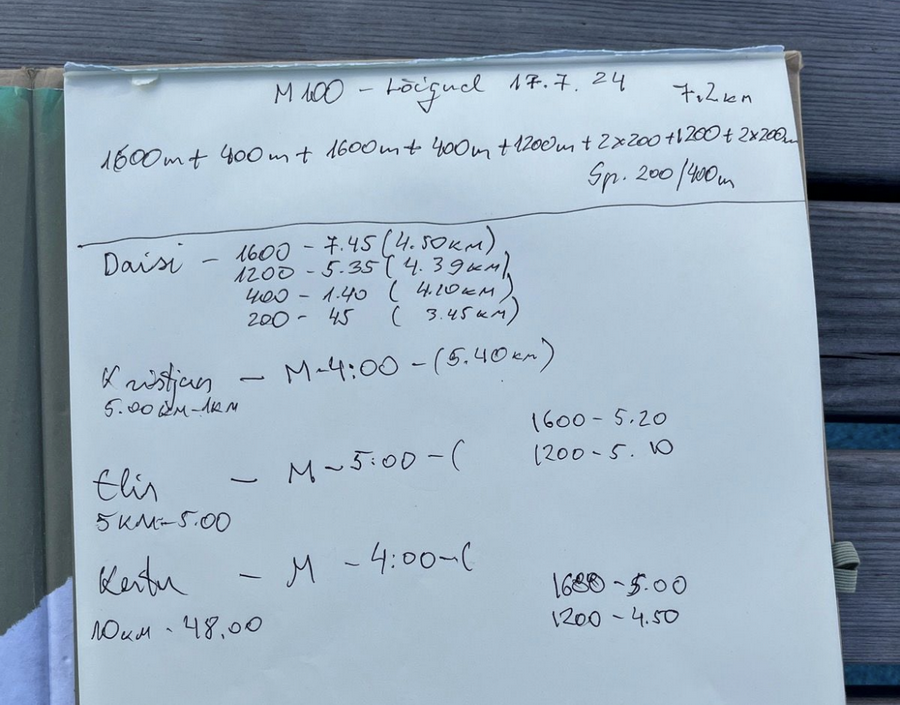 M100 - Lõigud 17.7.24 7.2km
1600m + 400m + 1600m + 400m + 1200m + 2x200 + 1200 + 2x200m
Sp. 200/400m
Daisi - 1600 - 7.45 (4.50км)
1200 - 5.35 (4.39км)
400 - 1.40 (4.10км)
200 - 45 (3.45км)
Kristjan - M-4:00 - (5.40км)
5.00км-1км
1600 - 5.20
1200 - 5.10
Elis - M - 5:00 - (
5км-5.00
Kertu - M - 4:00 - (
10км - 48.00
1600 - 5.00
1200 - 4.50